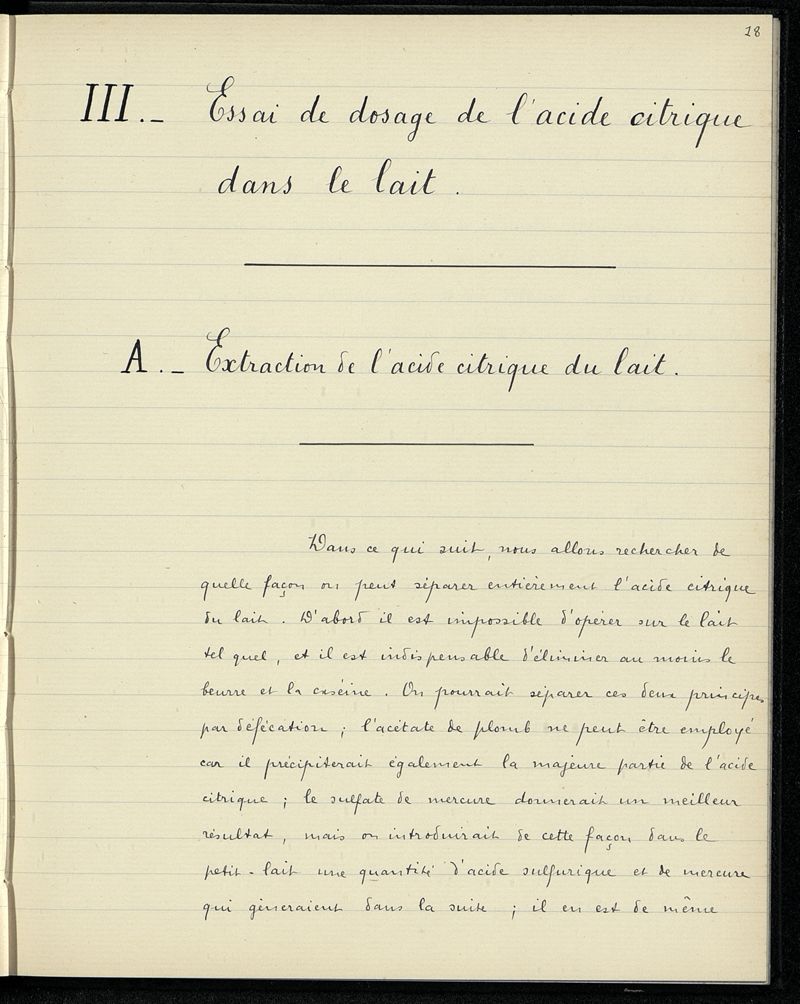 18
III.- Essai de dosage de l'acide citrique
dans le lait.
A.- Extraction de l'acide citrique du lait.
Dans ce qui suit, nous allons rechercher de
quelle façon on peut séparer entièrement l'acide citrique
du lait. D'abord il est impossible d'opérer sur le lait
tel quel, et il est indispensable d'éliminer au moins le
beurre et la caséine. On pourrait séparer ces deux principes
par défécation; l'acétate de plomb ne peut être employé
car il précipiterait également la majeure partie de l'acide
citrique; le sulfate de mercure donnerait un meilleur
résultat, mais on introduirait de cette façon dans le
petit-lait une quantité d'acide sulfurique et de mercure
qui gèneraient dans la suite; il en est de même